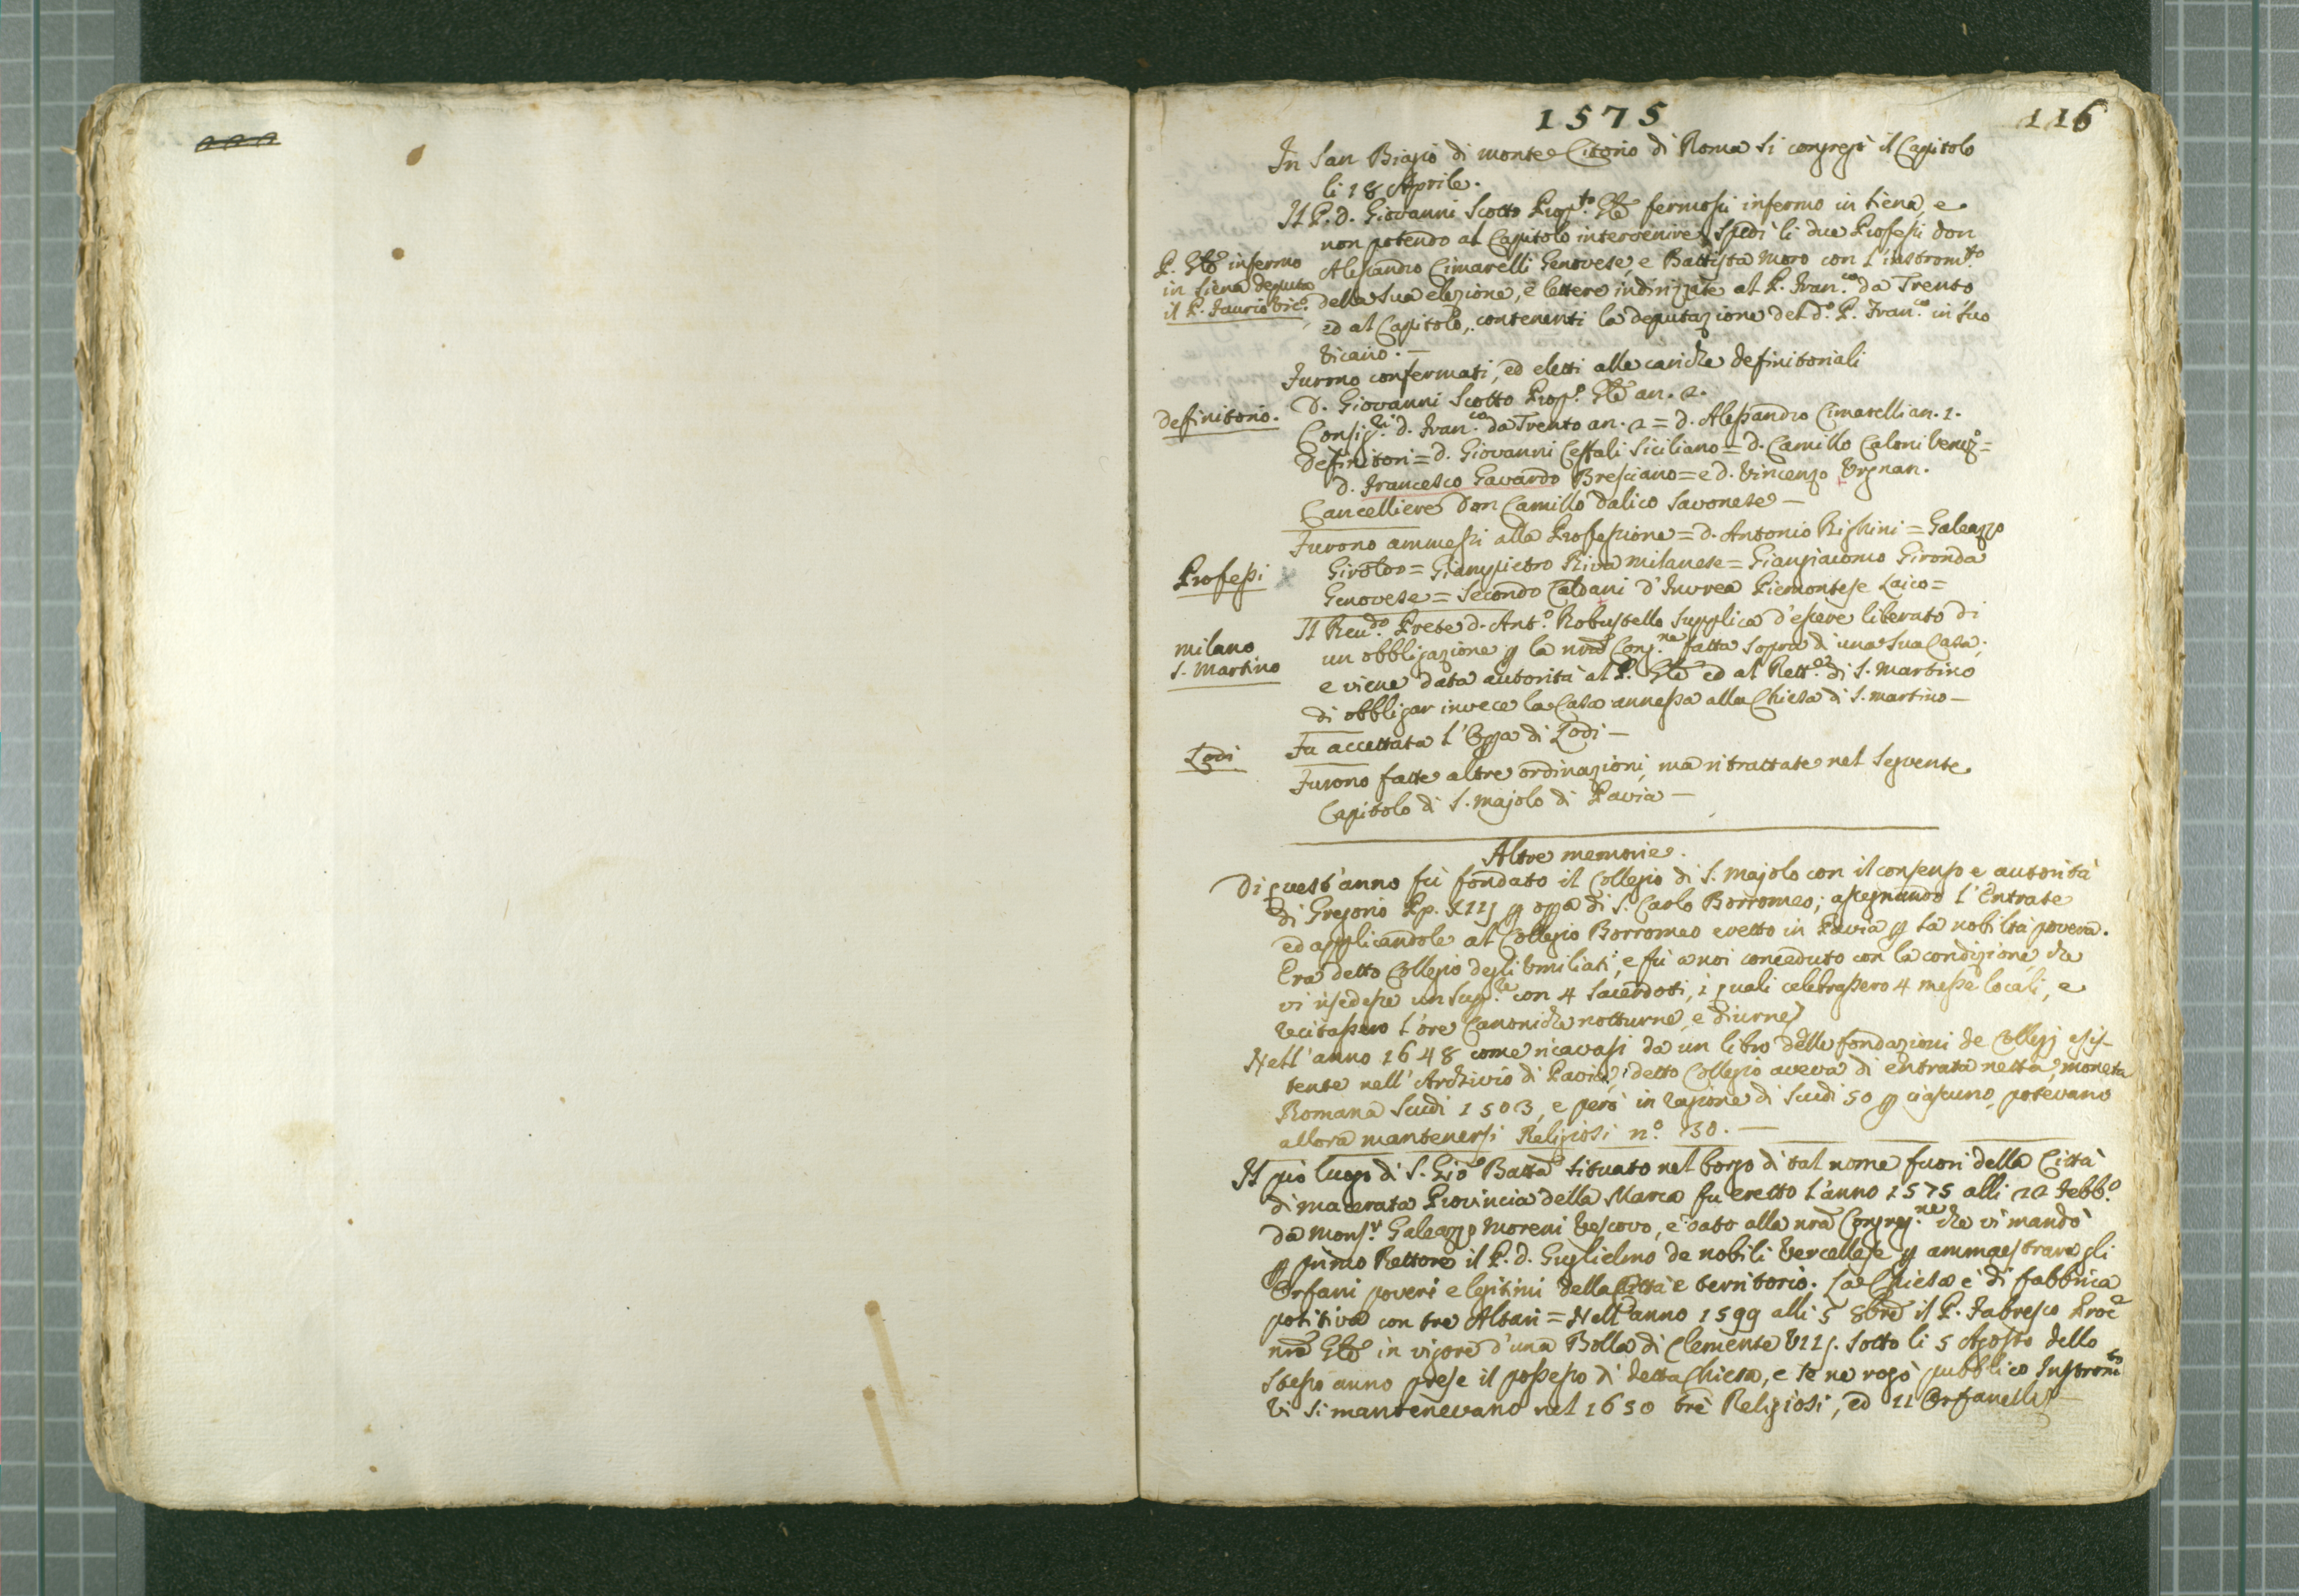 1575
116
In San Biagio di monte Citorio di Roma si congregò il Capitolo
li 18 Aprile.
Il P. d. Giovanni Scotto Prop.to Gñle fermosi infermo in Siena, e
non potendo al Capitolo intervenire, spedì li due Professi don
P. Gñle infermo
in Siena deputa
il P. Franc.o Vic.o
Alessandro Cimarelli Genovese, e Battista Moro con l'instrom.to
della sua elezione, e lettere indirizzate al P. Fran.co da Trento
ed al Capitolo, contenenti la deputazione del d.o P. Fran.co in suo
Vicario. —
Furono confermati, ed eletti alle cariche definitoriali
definitorio.
D. Giovanni Scotto Prop.o Gñle an. 2.
Consig.ri d. Fran.co da Trento an. 2 = d. Alessandro Cimarelli an. 1.
Definitori = d. Giovanni Ceffali Siciliano = d. Camillo Caloni
d. Francesco Gavardo Bresciano = e d. Vincenzo Urgnan.
Cancelliere Don Camillo Dalico Savonese —
Furono ammessi alla Professione = d. Antonio Righini = Galeazzo
Professi
Giroldo = Giampietro Riva milanese = Giangiacomo Gironda
Genovese = Secondo Caldani d'Iuvrea Piemontese Laico =
milano
S. Martino
Il Reu.do Prete d. Ant.o Robustello supplica d'essere liberato di
un obbligazione p la nrã Cong.ne fatta sopra di una sua Casa;
e viene data autorità al P. Gñle ed al Rett.e di S. Martino
di obbligar invece la Casa annessa alla Chiesa di S. martino —
Lodi
Fu accettata l'Opa di Lodi —
Furono fatte altre ordinazioni, ma ritrattate nel seguente
Capitolo di S. Majolo di Pavia —
Altre memorie.
Di quest'anno fù fondato il Collegio di S. Majolo con il consenso e autorità
di Gregorio Pp. XIIJ p opa di S. Carlo Borromeo; assegnando l'Entrate
ed applicandole al Collegio Borromeo eretto in Pavia p la nobiltà povera.
Era detto Collegio degli Umiliati, e fù a noi conceduto con la condizione, che
vi risedesse un Sup.re con 4 Sacerdoti, i quali celebrassero 4 messe locali, e
recitassero l'ore Canoniche notturne, e diurne
Nell'anno 1648 come ricavasi da un libro delle fondazioni de Collegj esis-
tente nell'Archivio di Pavia, detto Collegio aveva di entrata netta, moneta
Romana Scudi 1503, e però in ragione di Scudi 50 p ciascuno, potevano
allora mantenersi Religiosi n.o 30. —
Il pio luogo di S. Gio Batta situato nel borgo di tal nome fuori della Città
di macerata Provincia della Marca fu eretto l'anno 1575 alli 22 Febb.o
da Mons.r Galeazzo Moreni Vescovo, e dato alla nrã Congreg.ne che vi mandò
p primo Rettore il P. d. Guglielmo de nobili Vercellese p ammaestrare gli
Orfani poveri e legitimi della Città e territorio. La Chiesa è di fabbrica
positiva con tre Altari = Nell'anno 1599 alli 5 8bre il P. Fabresco Proc.e
nrõ Gñle in vigore d'una Bolla di Clemente VIIJ. sotto li 5 Agosto dello
Stesso anno prese il possesso di detta Chiesa, e se ne rogò pubblico Instrom.to
Vi si mantenevano nel 1650 trè Religiosi, ed 11 Orfanelli —